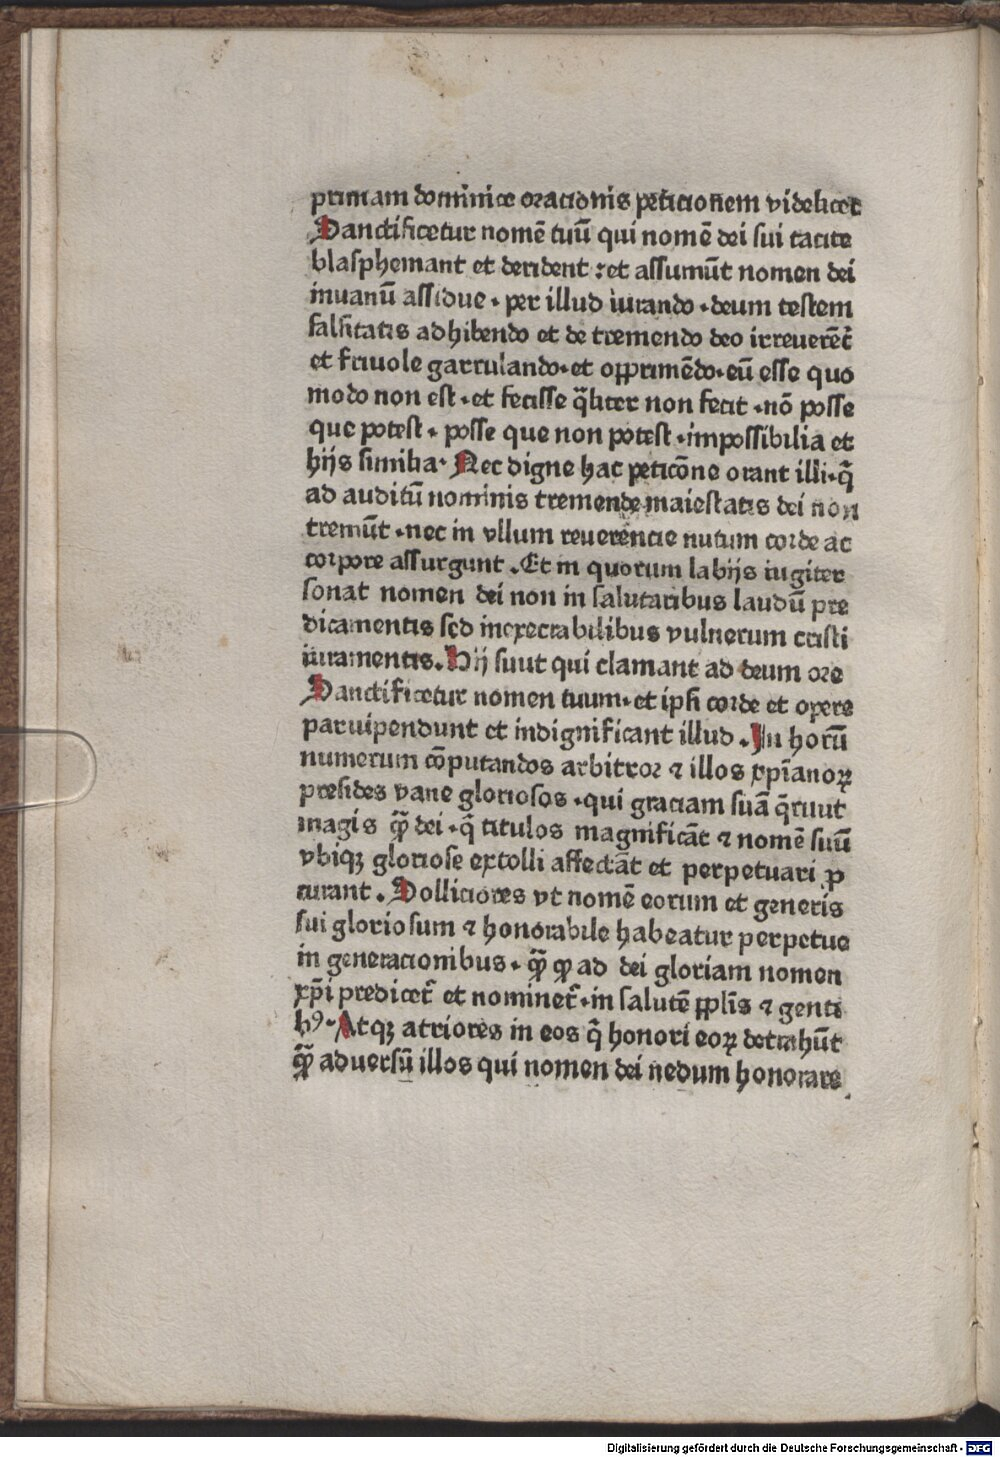 primam dominice oracionis peticionem videlicet
Sanctificetur nomē tuū qui nomē dei sui tacite
blasphemant et derident : et assumūt nomen dei
inuanū assidue . per illud iurando . deum testem
falsitatis adhibendo et de tremendo deo irreuerēt̄
et friuole garrulando . et opprimēdo . eū esse quo
modo non est . et fecisse q̄liter non fecit . nō posse
que potest . posse que non potest . impossibilia et
hijs similia . Nec digne hac peticōne orant illi . q̄
ad auditū nominis tremende maiestatis dei non
tremūt . nec in vllum reuerencie nutum corde ac
corpore assurgunt . Et in quorum labijs iugiter
sonat nomen dei non in salutaribus laudū pre
dicamentis sed inexecrabilibus vulnerum cristi
iuramentis . Hij suut qui clamant ad deum ore
Sanctificetur nomen tuum . et ipsi corde et opere
paruipendunt et indignificant illud . In horū
numerum cōputandos arbitror ⁊ illos xp̄ianoꝝ
presides vane gloriosos . qui graciam suā q̄runt
magis qꝫ̄ dei . q̄ titulos magnificāt ⁊ nomē suū
vbiqꝫ gloriose extolli affectāt et perpetuari ꝓ
curant . Solliciores vt nomē eorum et generis
sui gloriosum ⁊ honorabile habeatur perpetue
in generacionibus . qꝫ̄ ꝙ ad dei gloriam nomen
xp̄i predicet̄ et nominet̄ . in salutē pp̄lis ⁊ genti
bꝰ . Atqꝫ atriores in eos q̄ honori eoꝝ detrahūt
qꝫ̄ aduersū illos qui nomen dei nedum honorare
Digitalisierung gefördert durch die Deutsche Forschungsgemeinschaft - DFG